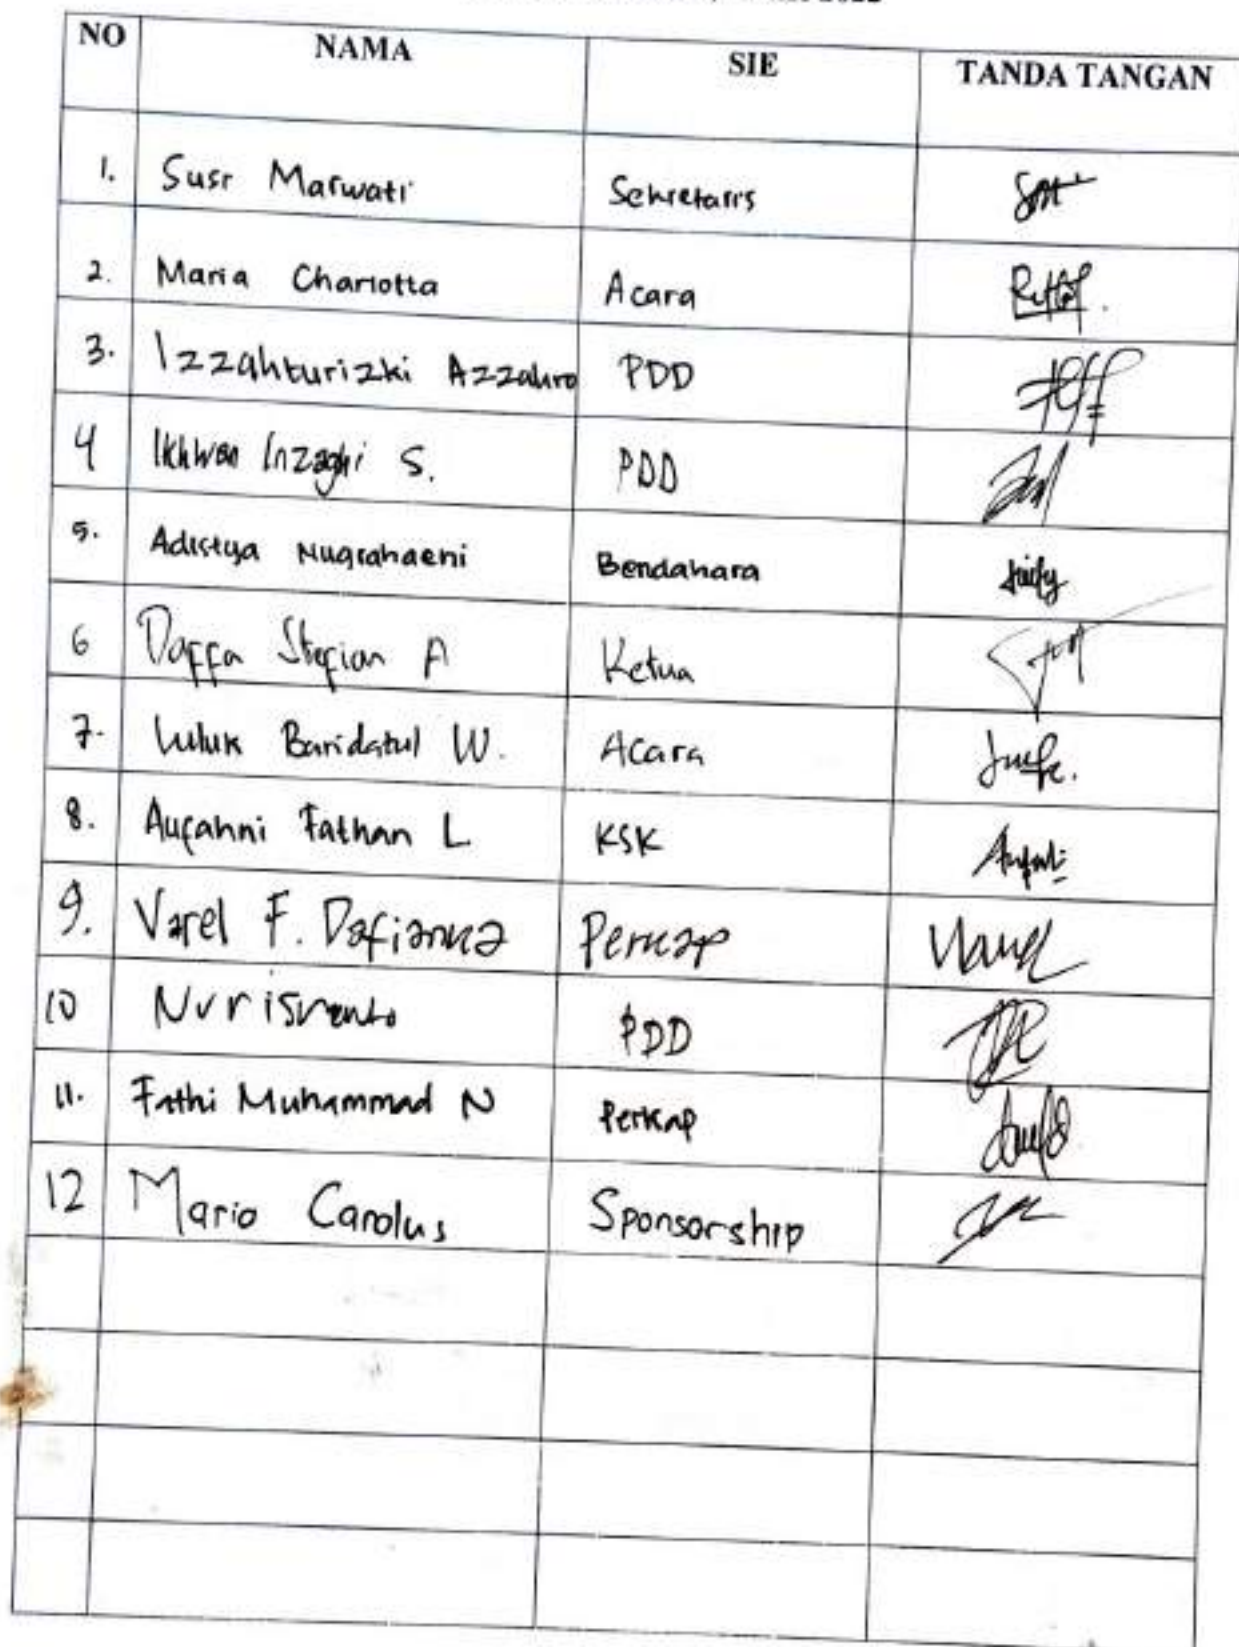 2022
NO NAMA SIE TANDA TANGAN
1. Susi Marwati Sekretaris
2. Maria Charlotta Acara
3. Izzahturizki Azzahra PDD
4 Ikhwan Inzaghi S. PDD
5. Adistya Nugrahaeni Bendahara
6 Daffa Stefian A Ketua
7. Luluk Baridatul W. Acara
8. Aufahni Fathan L KSK
9. Varel F. Dafianka Perkap
10 Nur isvanto PDD
11. Fathi Muhammad N Perkap
12 Mario Carolus Sponsorship